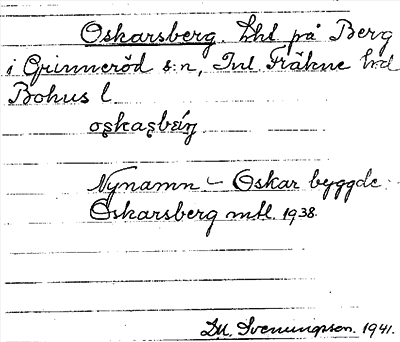 Oskarsberg. Lht på Berg
i Grinneröd s:n, Inl. Fräkne hd
Bohus l.
Nynamn – Oskar byggde
Oskarsberg mtl. 1938.
M. Svenungsson. 1941.